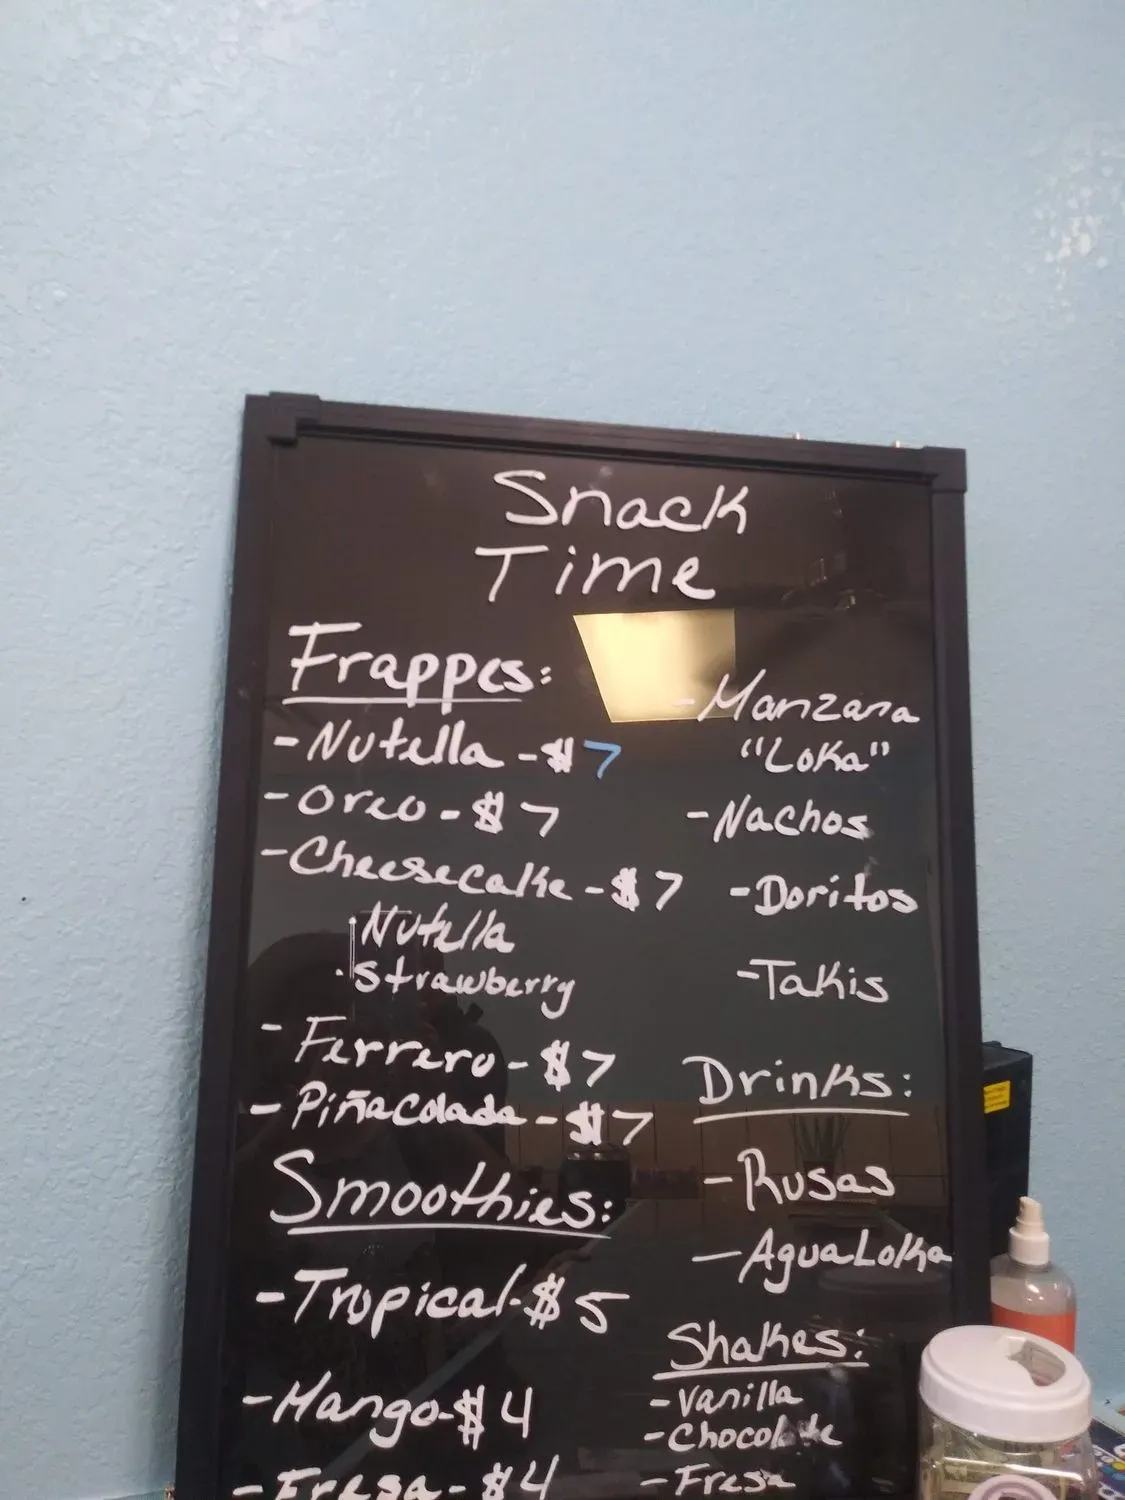 Snack
Time
Frappes:
-Nutella-$7
-Oreo-$7
-Cheesecake-$7
Nutella
·Strawberry
-Ferrero-$7
-Piñacolada-$7
Smoothies:
-Tropical-$5
-Mango-$4
-Fresa-$4
-Manzana
"Loka"
-Nachos
-Doritos
-Takis
Drinks:
-Rusas
-AguaLoka
Shakes:
-Vanilla
-Chocolate
-Fresa